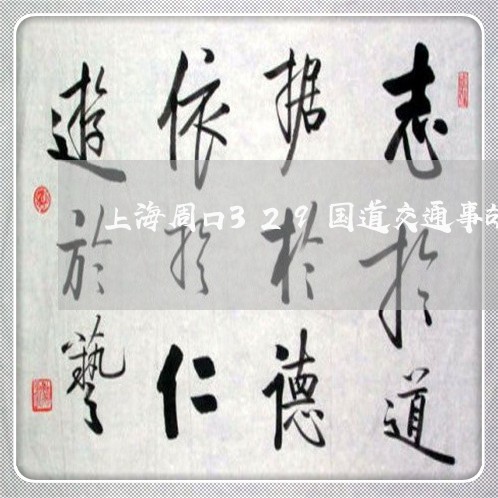 志於道
据於德
依於仁
遊於藝
上海周口329国道交通事